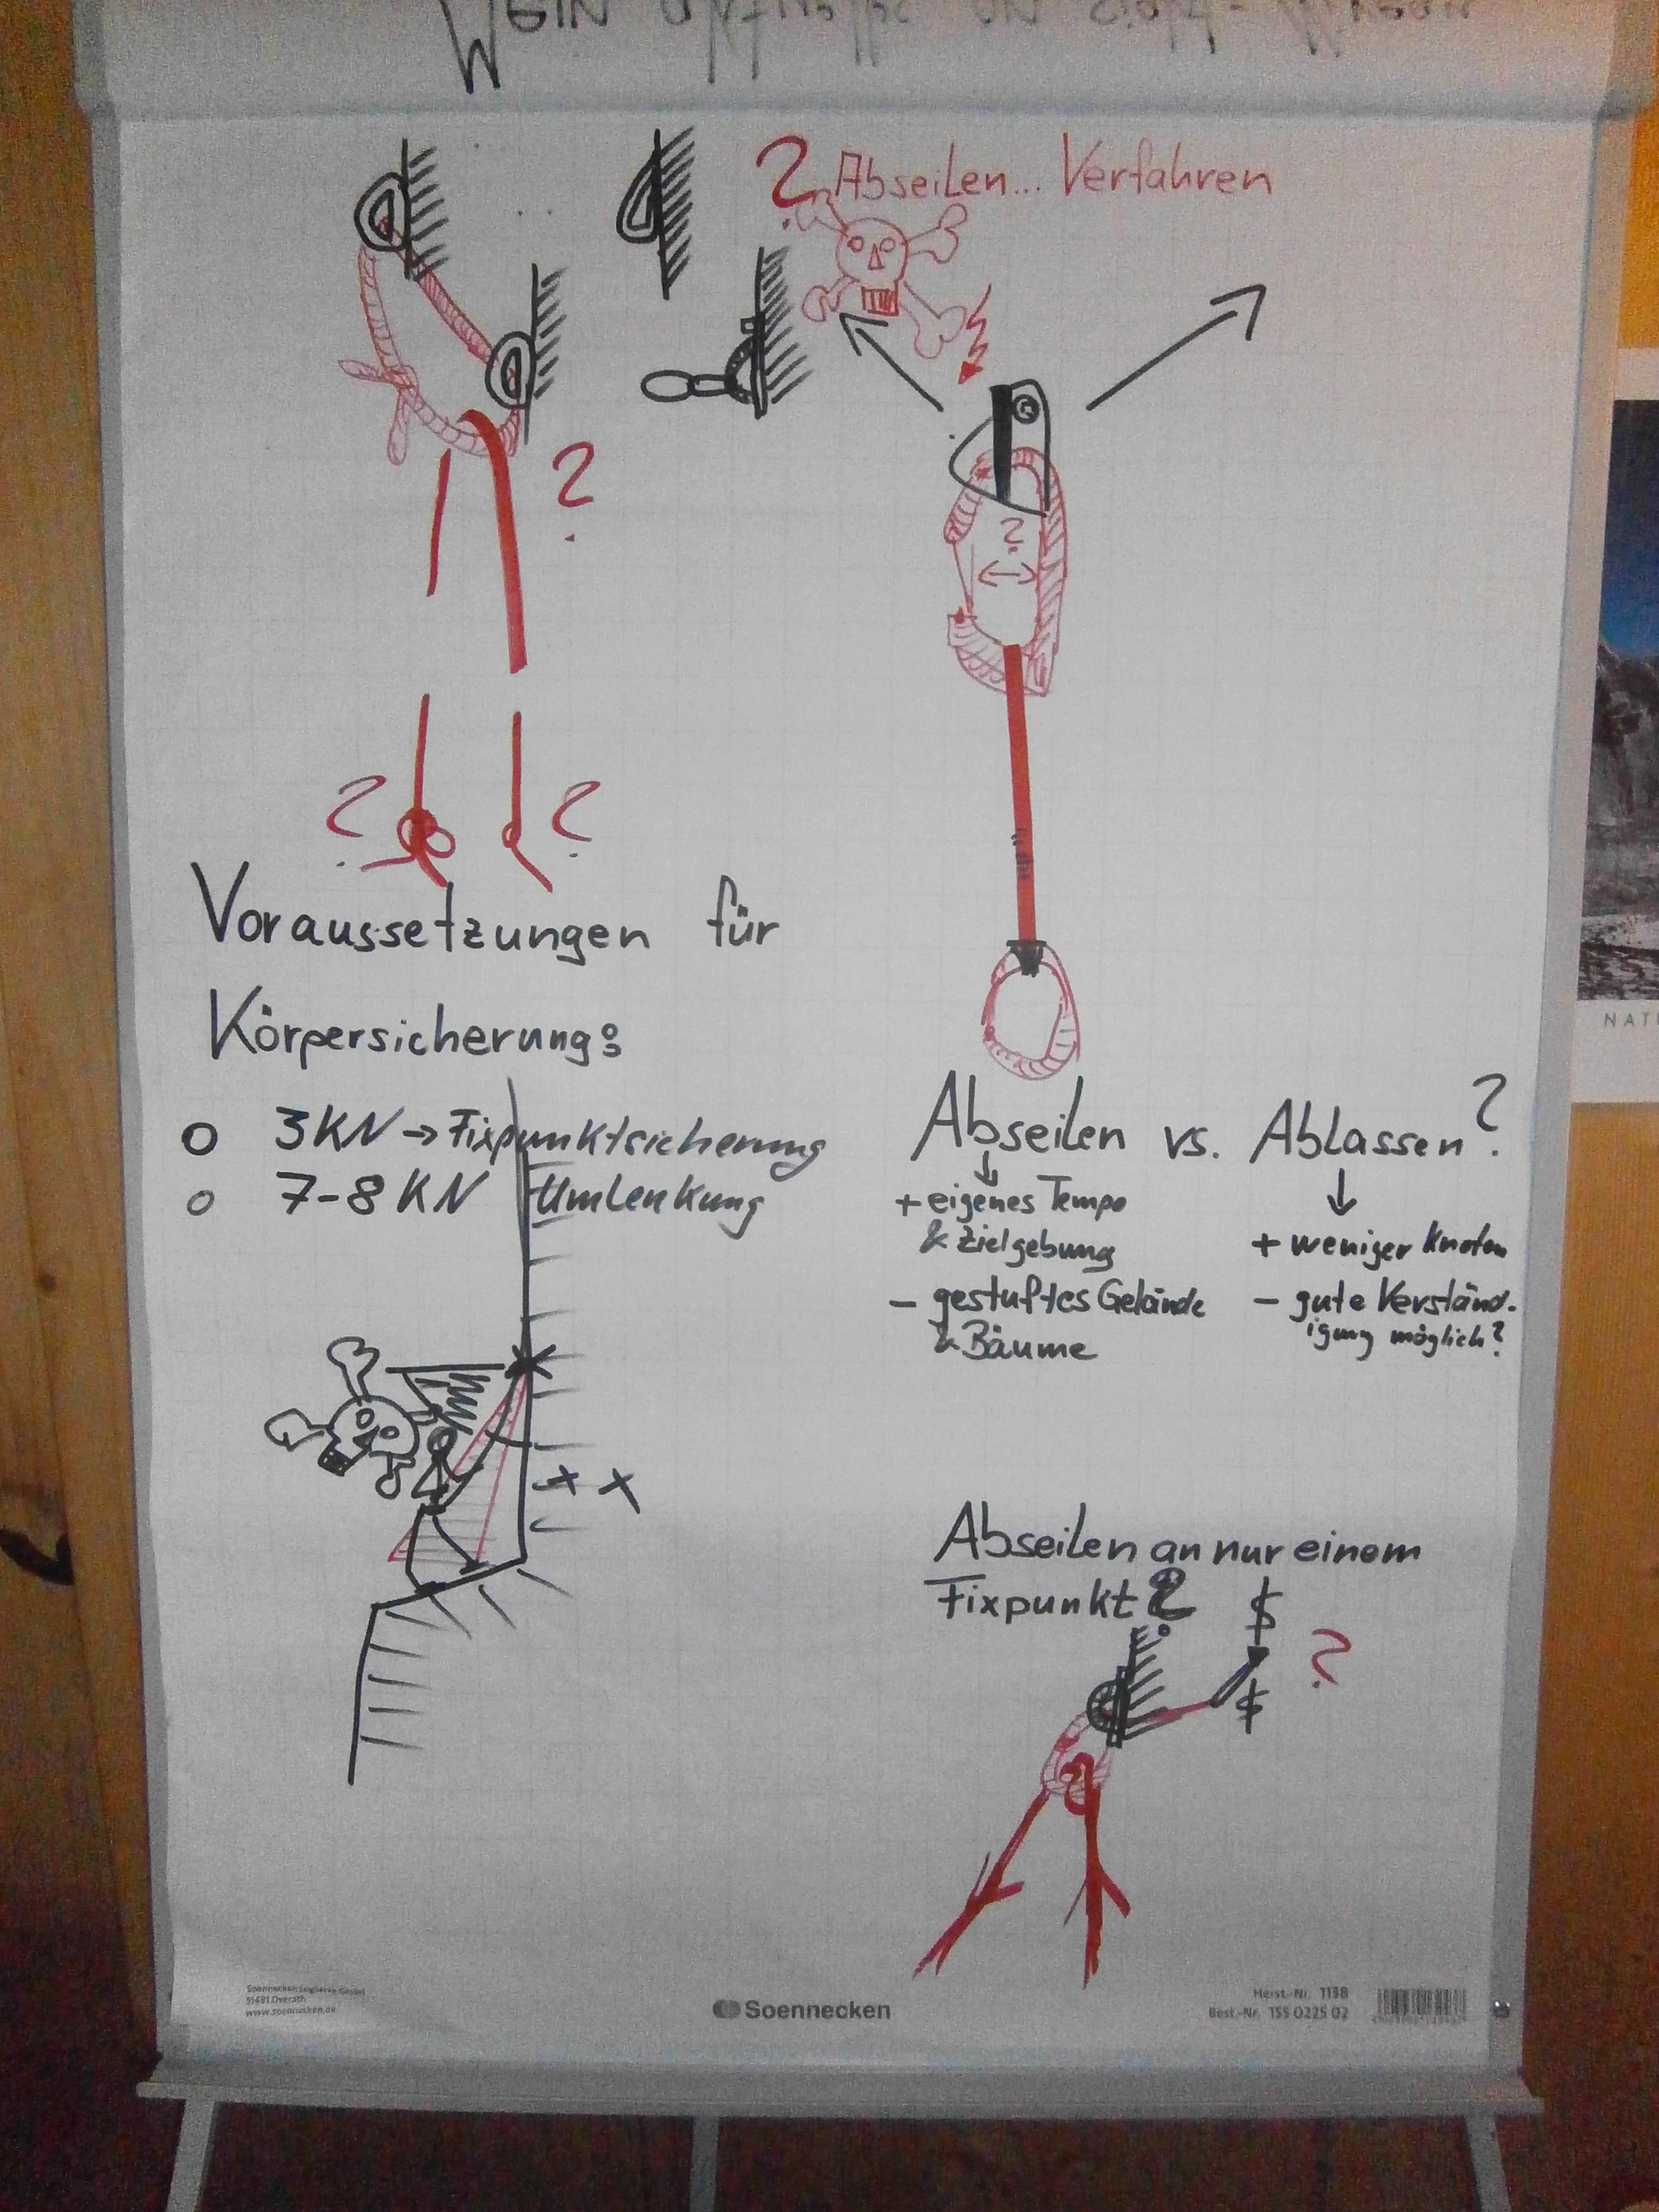 ? Abseilen... Verfahren
?
?
? ?
Voraussetzungen für
Körpersicherung:
3KN → Fixpunktsicherung
7-8 KN Umlenkung
Abseilen vs. Ablassen?
+ eigenes Tempo
& Zielgebung
- gestuftes Gelände
& Bäume
+ weniger Knoten
- gute Verständ-
igung möglich?
x x
Abseilen an nur einem
Fixpunkt?
$
?
$
Soennecken
91491 Overath
www.soennecken.de
Herst.-Nr. 1138
Best.-Nr. 155 0225 02
NAT